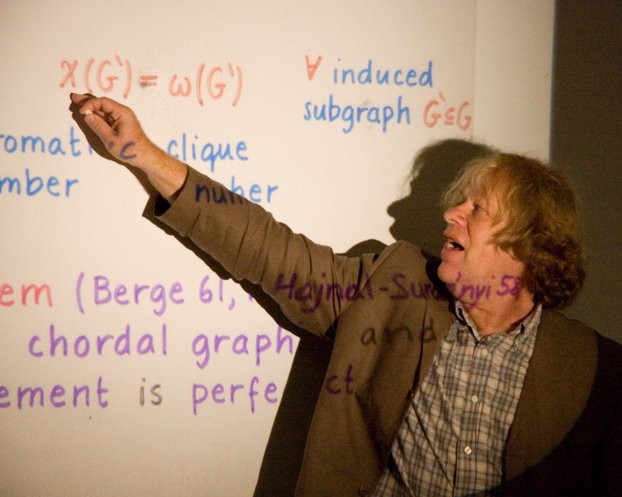 χ(G') = ω(G') ∀ induced
subgraph G'⊆G
romatic clique
mber nuher
em (Berge 61, Hajnal-Surányi 58
chordal graph and
ement is perfect